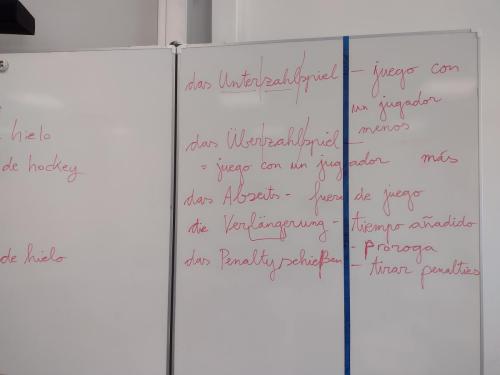 hielo
de hockey
de hielo
das Unter/zahl/spiel — juego con
un jugador
menos
das Über/zahl/spiel —
= juego con un jugador más
das Abseits - fuera de juego
die Verlängerung - tiempo añadido
- proroga
das Penaltyschießen - tirar penalties